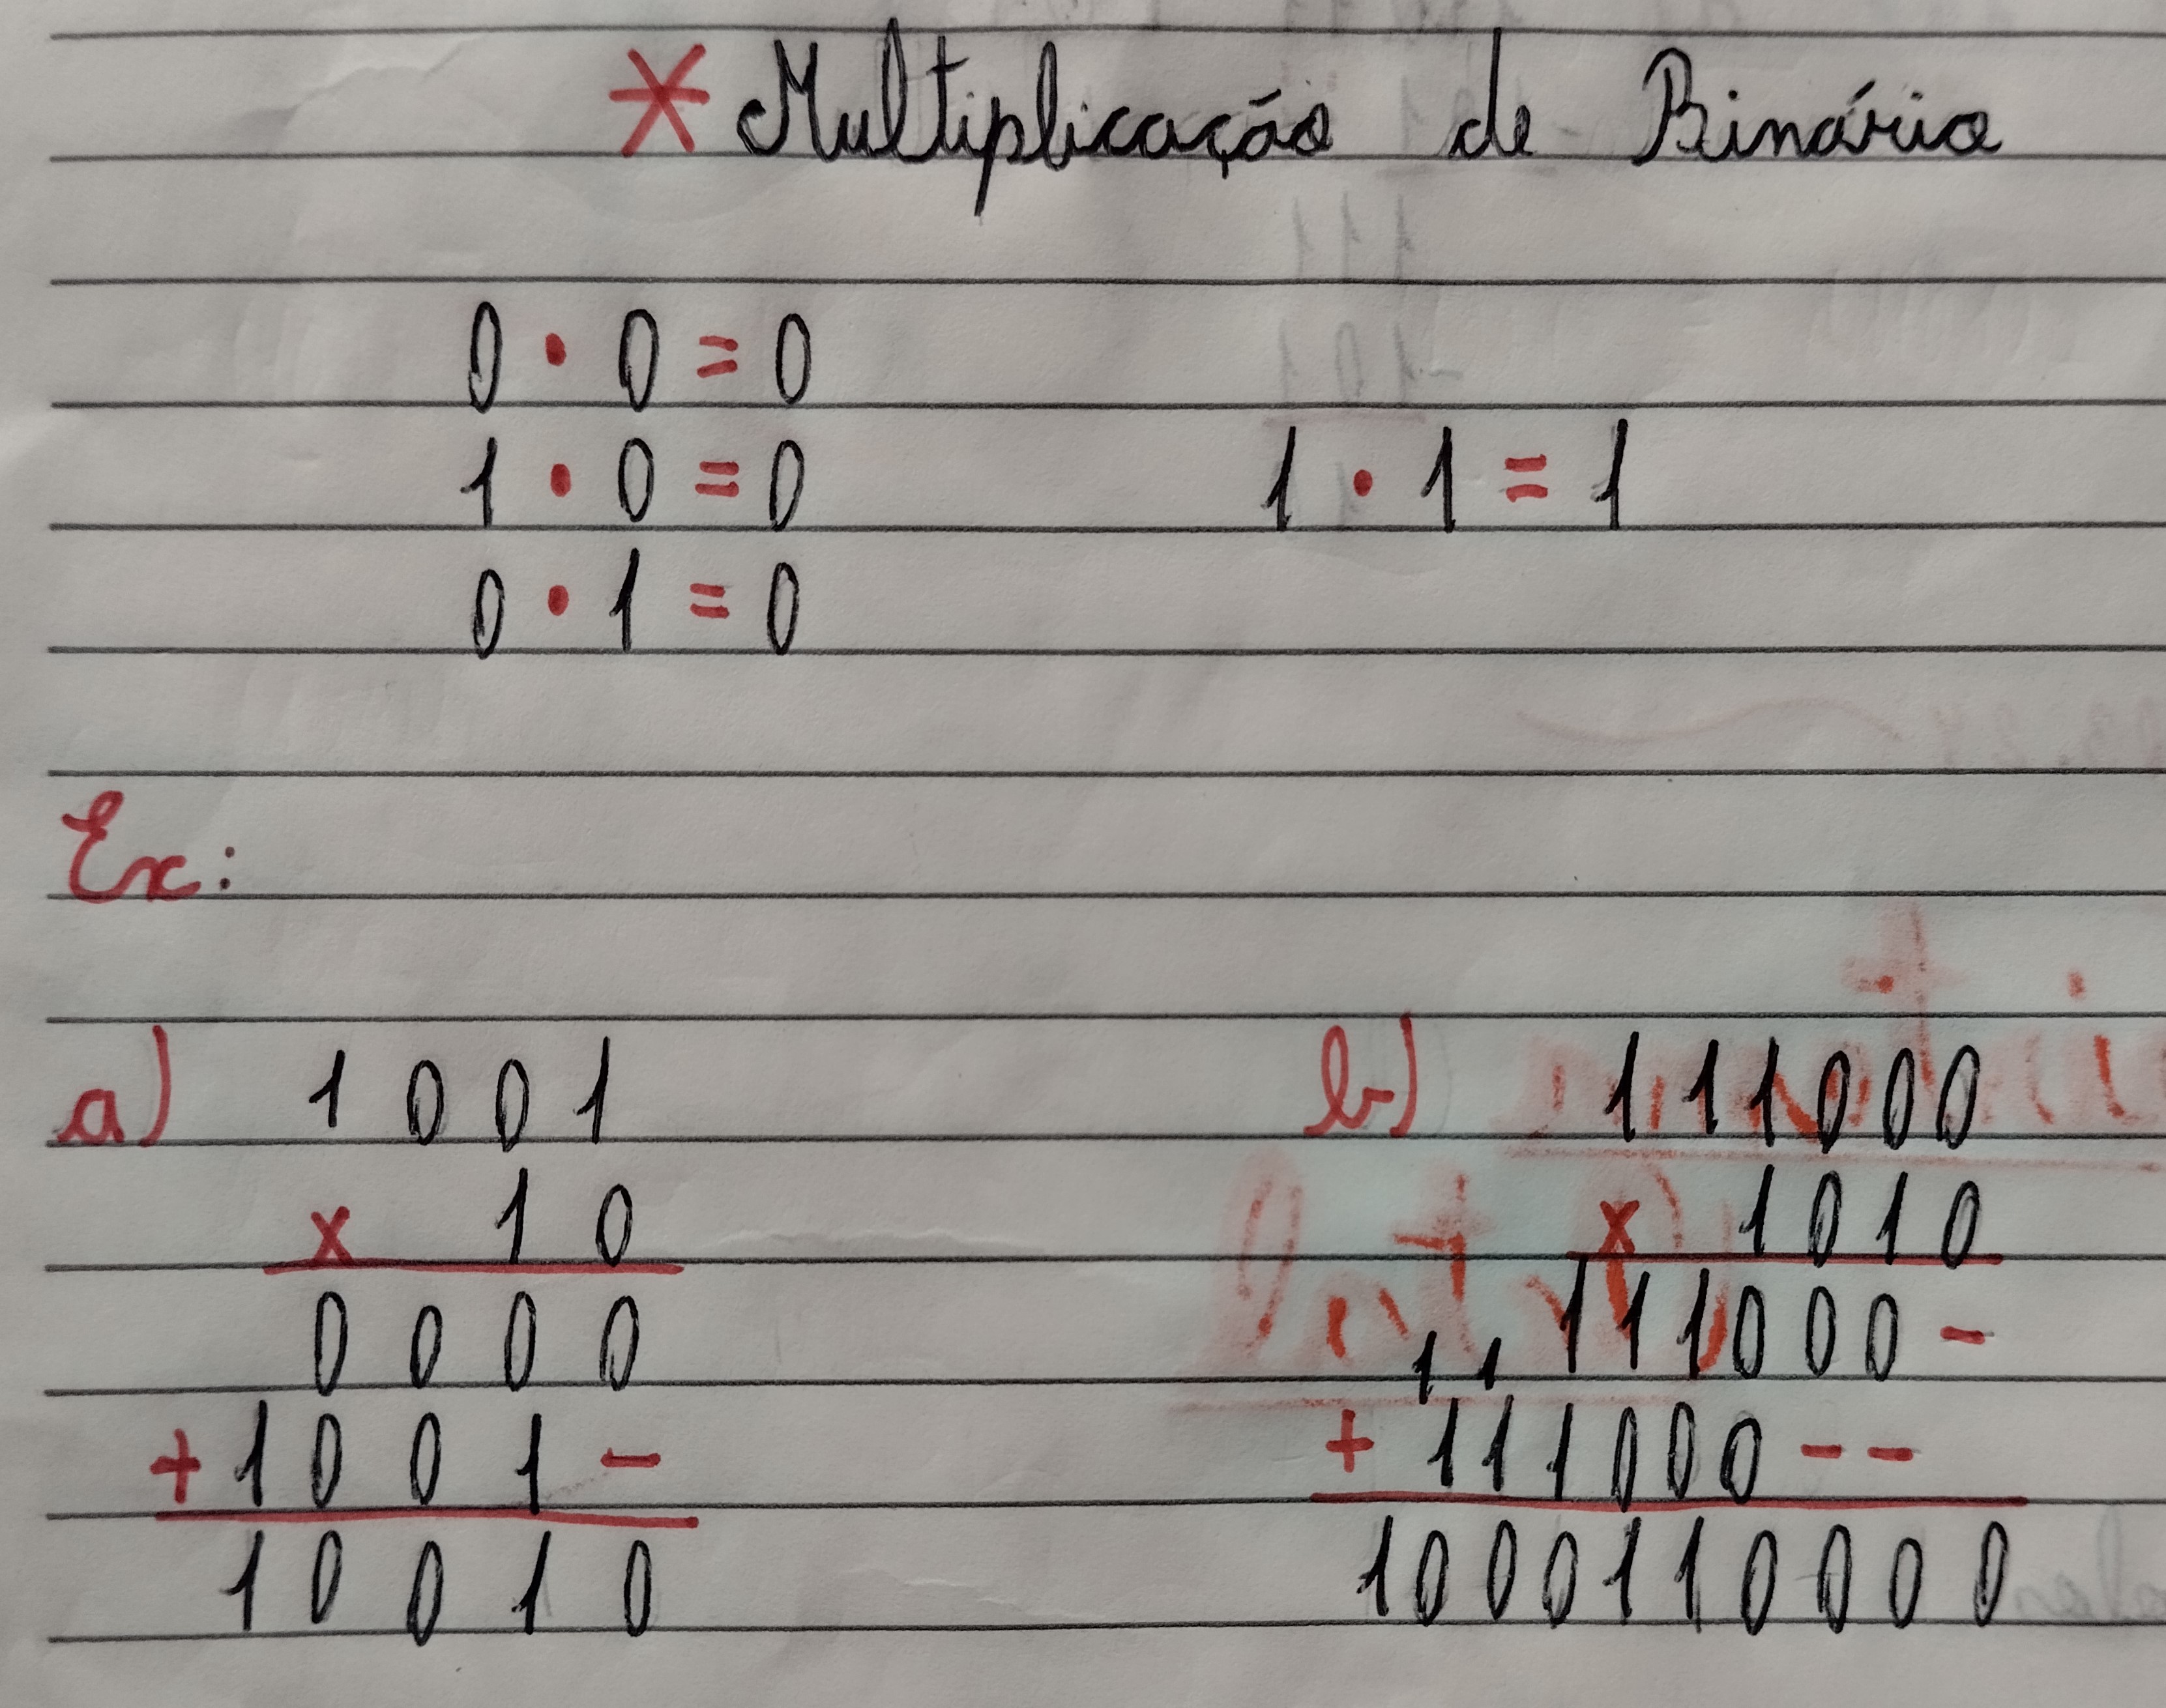 * Multiplicação de Binário
0 · 0 = 0
1 · 0 = 0 1 · 1 = 1
0 · 1 = 0
Ex:
a) 1001
x 10
0000
+ 1001 -
10010
b) 111000
x 1010
111000 -
1 1
+ 111000 - -
1000110000